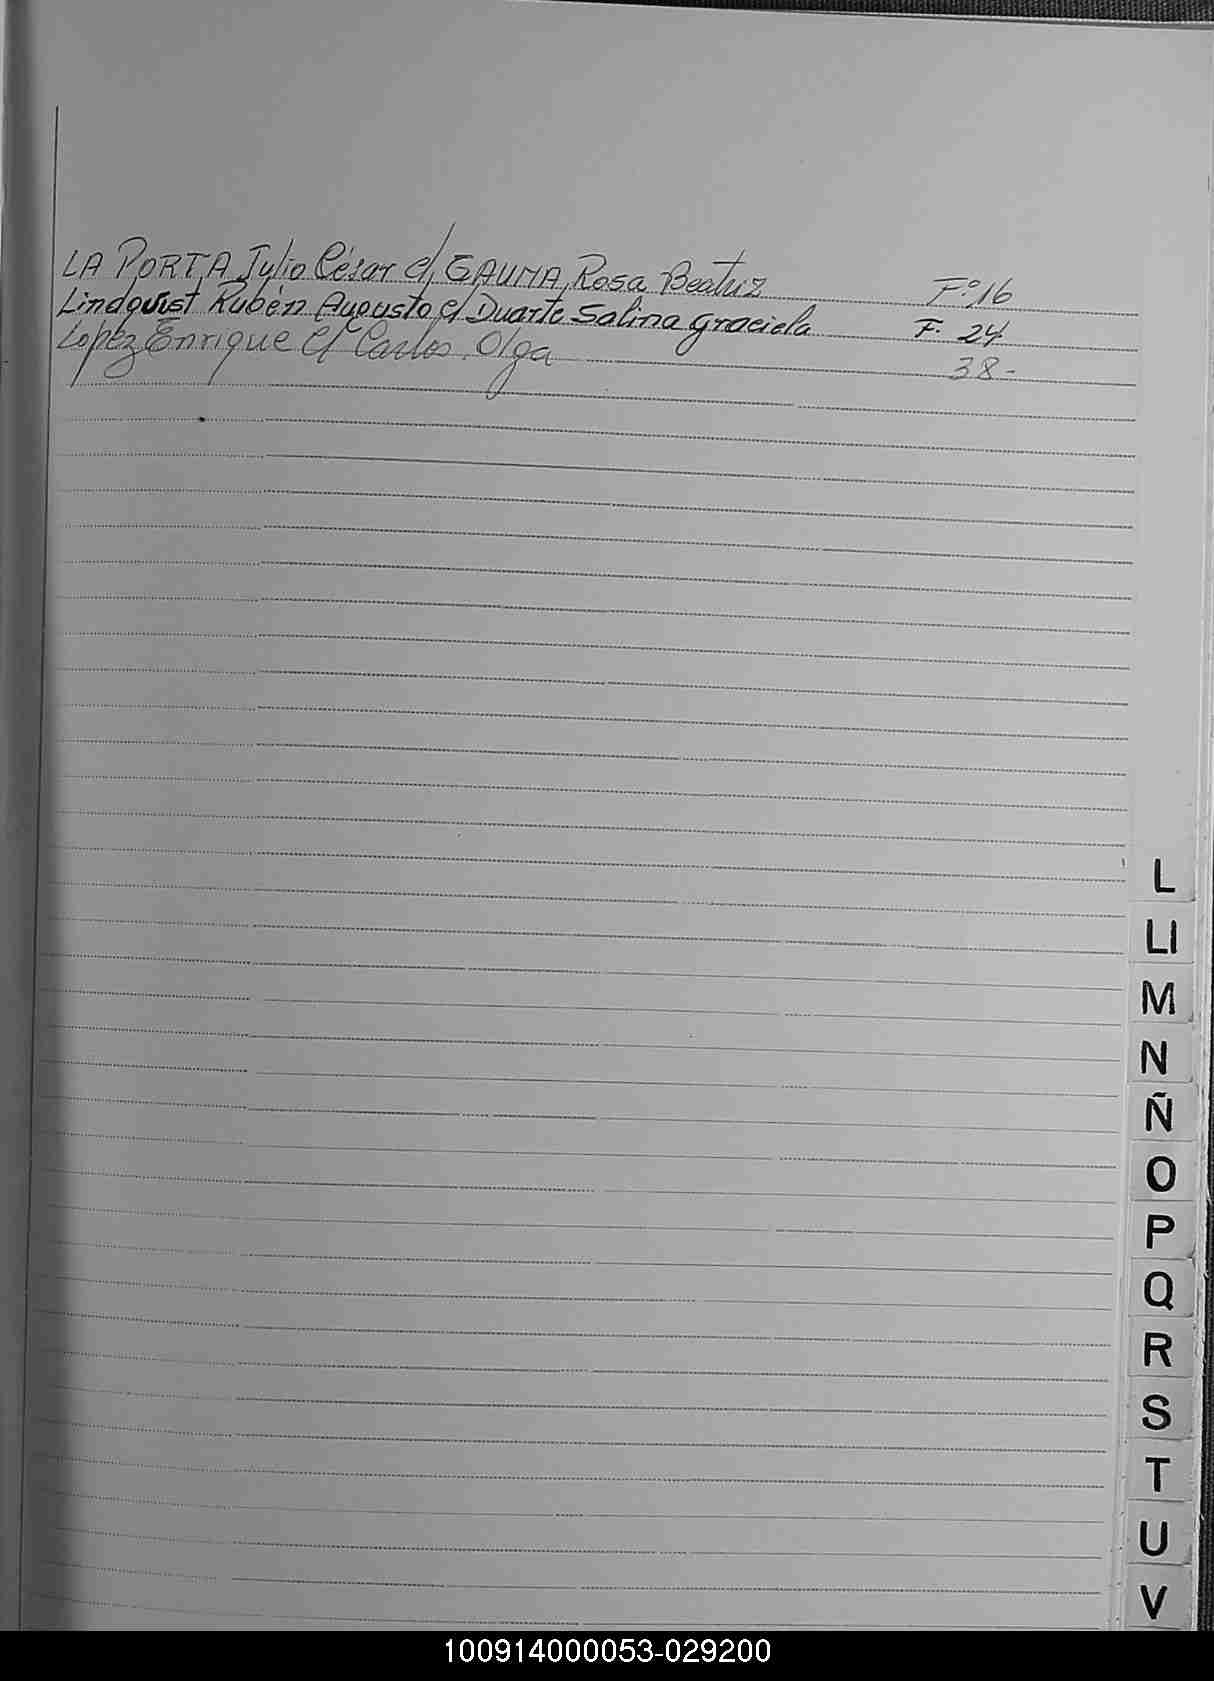 LA PORTA Julio César c/ GAUNA Rosa Beatriz Fº 16
Lindquist Rubén Augusto c/ Duarte Salina Graciela F. 24
Lopez Enrique c/ Carlos Olga 38-
L
Ll
M
N
Ñ
O
P
Q
R
S
T
U
V
100914000053-029200